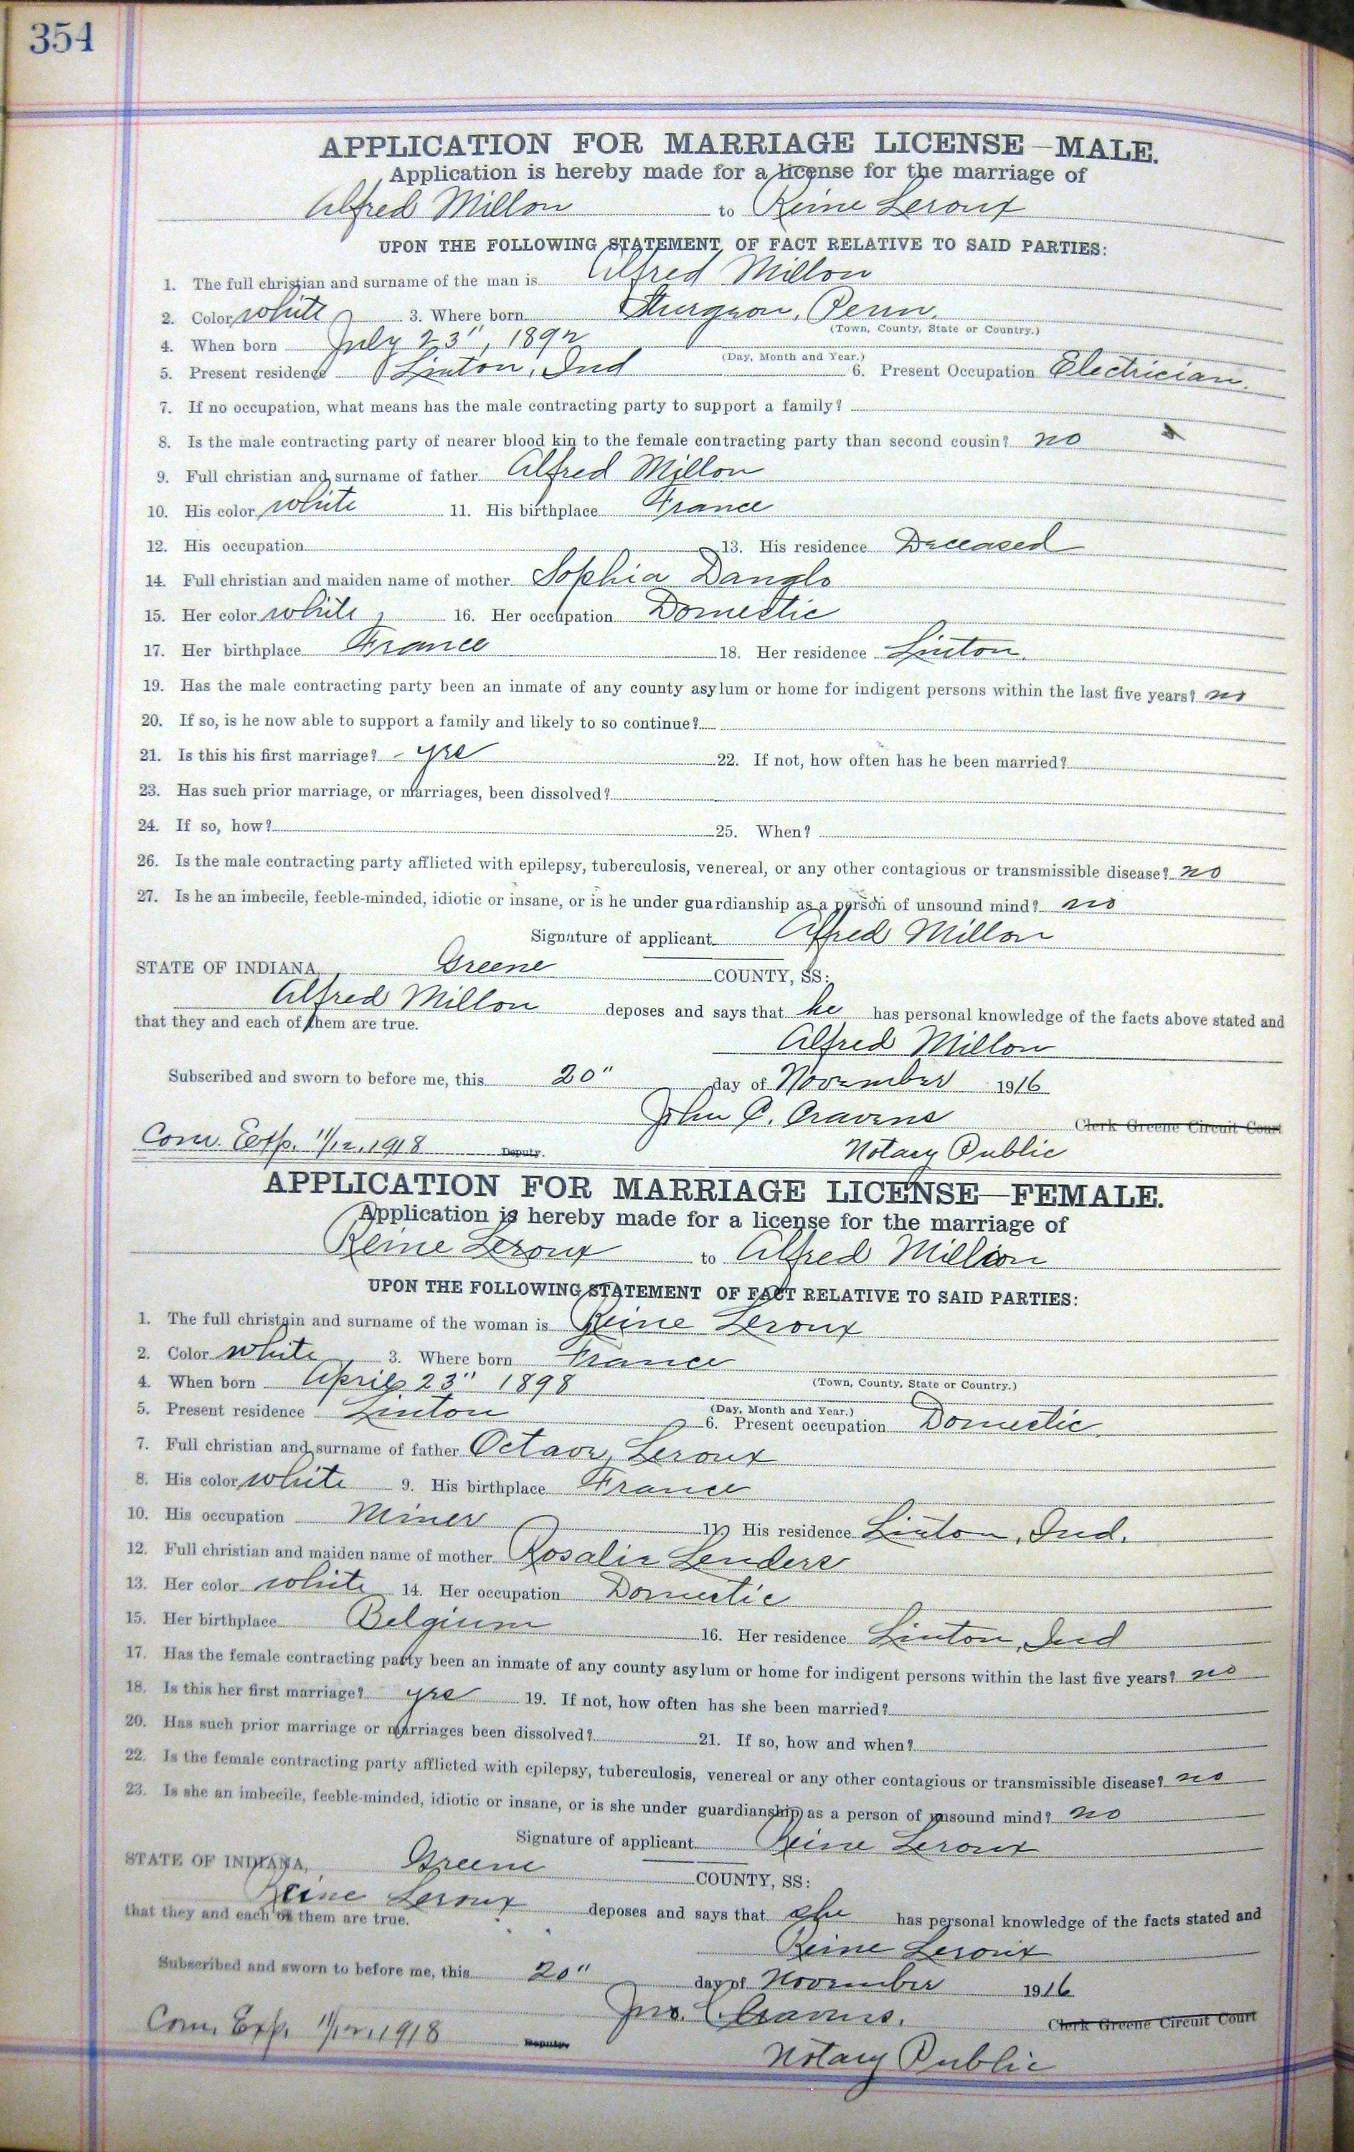 354
APPLICATION FOR MARRIAGE LICENSE—MALE.
Application is hereby made for a license for the marriage of
Alfred Millon to Reine Leroux
UPON THE FOLLOWING STATEMENT OF FACT RELATIVE TO SAID PARTIES:
1. The full christian and surname of the man is Alfred Millon
2. Color white 3. Where born Sturgeon, Penn.
(Town, County, State or Country.)
4. When born July 23", 1892
(Day, Month and Year.)
5. Present residence Linton, Ind 6. Present Occupation Electrician.
7. If no occupation, what means has the male contracting party to support a family?
8. Is the male contracting party of nearer blood kin to the female contracting party than second cousin? no
9. Full christian and surname of father Alfred Millon
10. His color white 11. His birthplace France
12. His occupation 13. His residence Deceased
14. Full christian and maiden name of mother Sophia Danglo
15. Her color white 16. Her occupation Domestic
17. Her birthplace France 18. Her residence Linton.
19. Has the male contracting party been an inmate of any county asylum or home for indigent persons within the last five years? no
20. If so, is he now able to support a family and likely to so continue?
21. Is this his first marriage? yes 22. If not, how often has he been married?
23. Has such prior marriage, or marriages, been dissolved?
24. If so, how? 25. When?
26. Is the male contracting party afflicted with epilepsy, tuberculosis, venereal, or any other contagious or transmissible disease? no
27. Is he an imbecile, feeble-minded, idiotic or insane, or is he under guardianship as a person of unsound mind? no
Signature of applicant Alfred Millon
STATE OF INDIANA, Greene COUNTY, SS:
Alfred Millon deposes and says that he has personal knowledge of the facts above stated and
that they and each of them are true.
Alfred Millon
Subscribed and sworn to before me, this 20" day of November 1916
John C. Cravens Clerk Greene Circuit Court
Com. Exp. 11/12, 1918 Deputy. Notary Public
APPLICATION FOR MARRIAGE LICENSE—FEMALE.
Application is hereby made for a license for the marriage of
Reine Leroux to Alfred Millon
UPON THE FOLLOWING STATEMENT OF FACT RELATIVE TO SAID PARTIES:
1. The full christain and surname of the woman is Reine Leroux
2. Color white 3. Where born France
(Town, County, State or Country.)
4. When born April 23" 1898
(Day, Month and Year.)
5. Present residence Linton 6. Present occupation Domestic
7. Full christian and surname of father Octave Leroux
8. His color white 9. His birthplace France
10. His occupation Miner 11. His residence Linton, Ind.
12. Full christian and maiden name of mother Rosalie Lenders
13. Her color white 14. Her occupation Domestic
15. Her birthplace Belgium 16. Her residence Linton, Ind
17. Has the female contracting party been an inmate of any county asylum or home for indigent persons within the last five years? no
18. Is this her first marriage? yes 19. If not, how often has she been married?
20. Has such prior marriage or marriages been dissolved? 21. If so, how and when?
22. Is the female contracting party afflicted with epilepsy, tuberculosis, venereal or any other contagious or transmissible disease? no
23. Is she an imbecile, feeble-minded, idiotic or insane, or is she under guardianship as a person of unsound mind? no
Signature of applicant Reine Leroux
STATE OF INDIANA, Greene COUNTY, SS:
Reine Leroux deposes and says that she has personal knowledge of the facts stated and
that they and each of them are true.
Reine Leroux
Subscribed and sworn to before me, this 20" day of November 1916
Jno. C. Cravens. Clerk Greene Circuit Court
Com. Exp. 11/12, 1918 Deputy. Notary Public